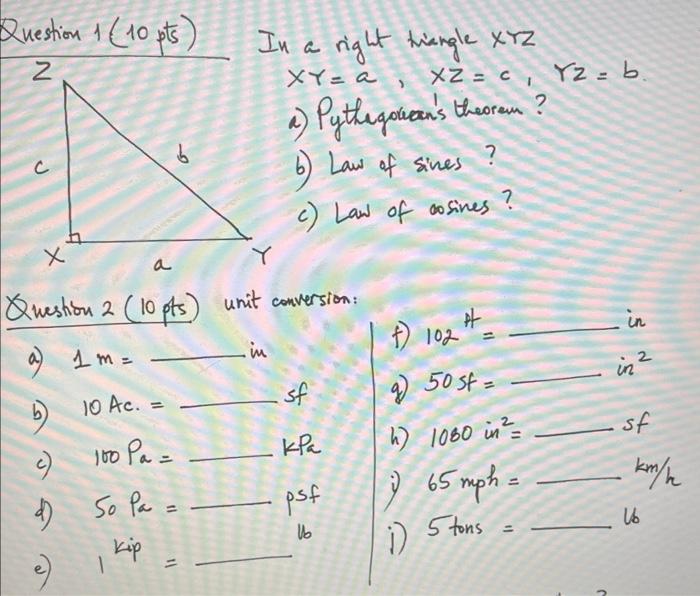 Question 1 (10 pts)
In a right triangle XYZ
XY = a , XZ = c , YZ = b.
a) Pythagorean's theorem ?
b) Law of sines ?
c) Law of cosines ?
Z
c
b
X
a
Y
Question 2 (10 pts) unit conversion:
a) 1 m = ______ in
b) 10 Ac. = ______ sf
c) 100 Pa = ______ kPa
d) 50 Pa = ______ psf
e) 1 kip = ______ lb
f) 102 ft = ______ in
g) 50 sf = ______ in²
h) 1080 in² = ______ sf
i) 65 mph = ______ km/h
j) 5 tons = ______ lb